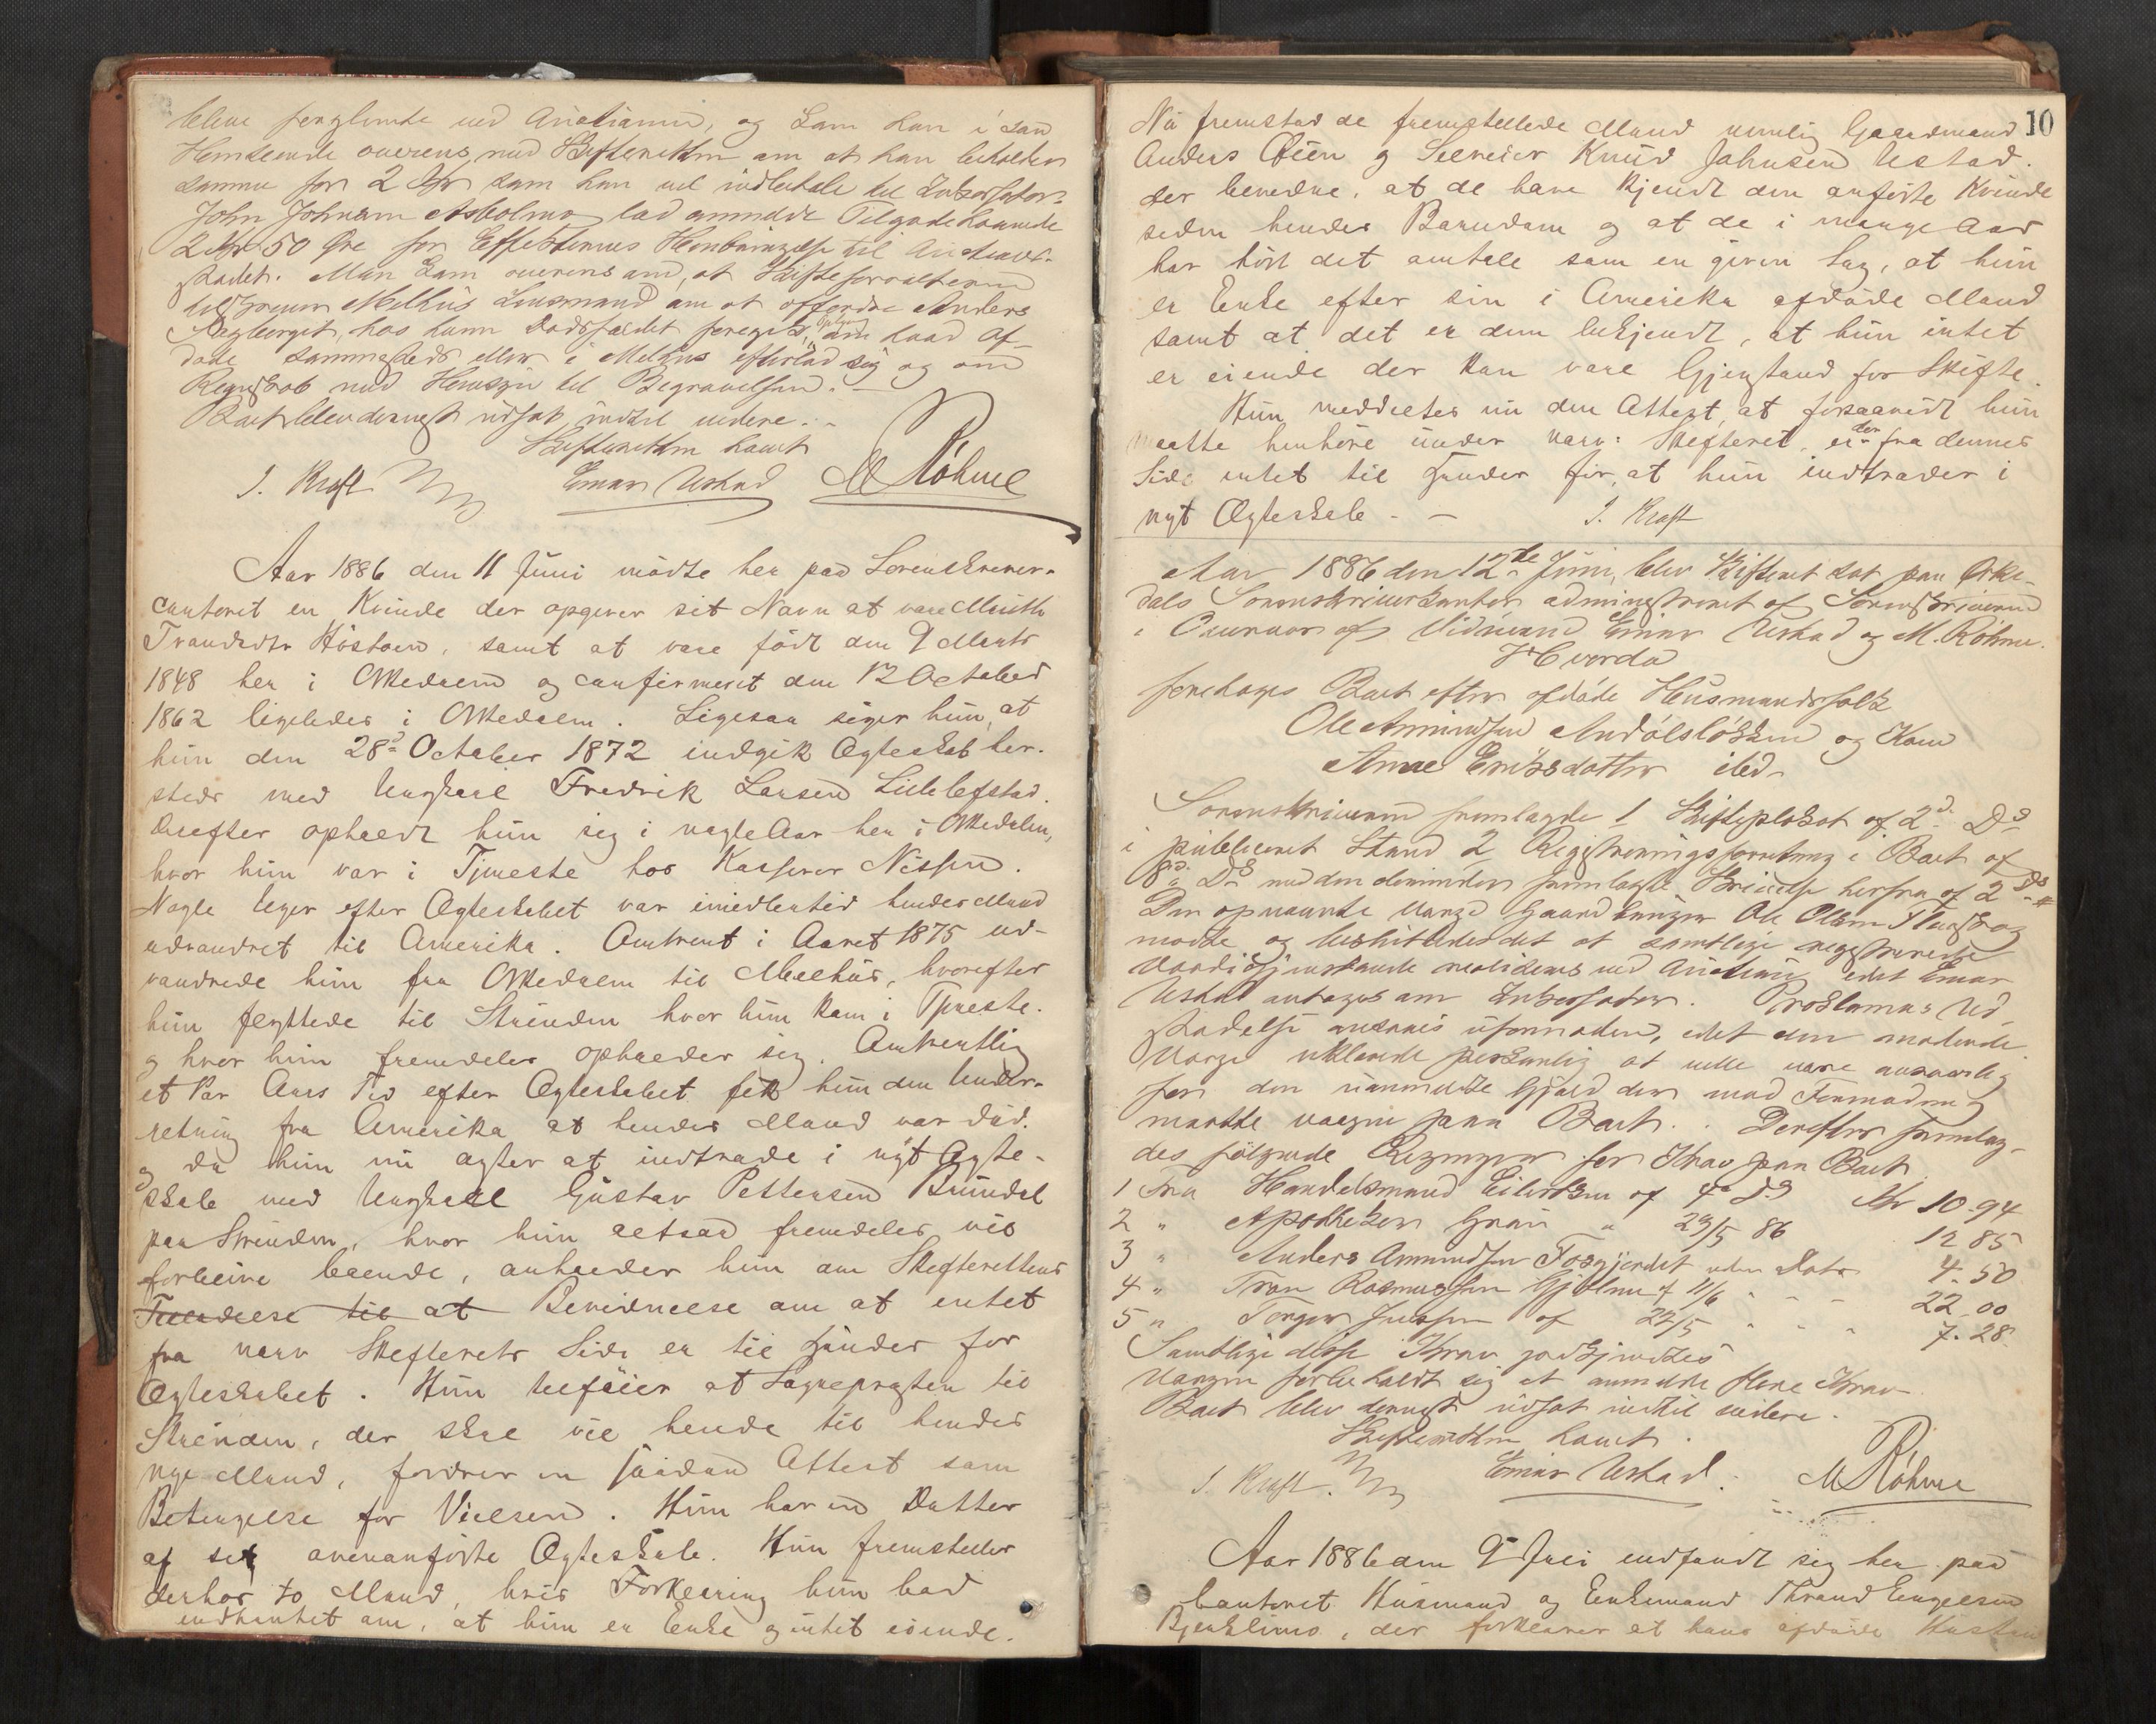 bleve forglemte ved Auctionen, og kom han i saa
Henseende overens med Skifteretten om at han beholder
samme for 2 Kr som han vil indbetale til Inkassator.
John Johnsen Asbolmo lod anmelde Tilgodehavende
2 Kr 50 Øre for Effekternes Henbringelse til Auctions-
stedet. Man kom overens om, at Skifteforvalteren
tilskriver Melhus Lensmand om at opfordre Anders
hos ham Dødsfaldet foregik, om hvad Af-
døde sammesteds eller i Melhus efterlod sig og om
Regnskab med Hensyn til Begravelsen. -
Boet blev dernæst udsat indtil videre. -
Skifteretten hævet
J. Kraft Einar Uskad M Röhme
Aar 1886 den 11 Juni mødte her paa Sorenskriver-
contoret en Kvinde der opgiver sit Navn at være Marith
Trondsdtr Höstoen, samt at være født den 9 Marts
1848 her i Meldalen og confirmeret den 12 October
1862 ligeledes i Meldalen. Ligesaa siger hun, at
hun den 28d October 1872 indgik Ægteskab her-
steds med Ungkarl Fredrik Larsen Lillelefstad.
Derefter opholdt hun sig i nogle Aar her i Meldalen,
hvor hun var i Tjeneste hos Kasserer Nissen.
Nogle Uger efter Ægteskabet var imidlertid hendes Mand
udvandret til Amerika. Omtrent i Aaret 1875 ud-
vandrede hun fra Meldalen til Melhus, hvorefter
hun flyttede til Strinden hvor hun kom i Tjeneste.
og hvor hun fremdeles opholder sig. Omtrentlig
et Par Aars Tid efter Ægteskabet fik hun den Under-
retning fra Amerika at hendes Mand var död.
og da hun nu agter at indtræde i nyt Ægte-
skab med Ungkarl Gustav Pettersen Brundal
paa Strinden, hvor hun altsaa fremdeles vil
forblive boende, anholder hun om Skifterettens
Tilladelse til at Bevidnelse om at intet
fra nærv Skifterets Side er til Hinder for
Ægteskabet. Hun tilföier at Sognepresten til
Strinden, der skal vie hende til hendes
nye Mand, fordrer en saadan Attest som
Betingelse for Vielsen. Hun har en Datter
af sit ovenanförte Ægteskab. Hun fremstiller
derhos to Mænd, hvis Forklaring hun bad
indhentet om, at hun er Enke og intet eiende.
10
Nu fremstod de fremstillede Mænd nemlig Gaardmand
Anders Öien og Selveier Knud Johnsen Ustad.
der bevidne, at de have kjendt den anförte Kvinde
siden hendes Barndom og at de i mange Aar
har hört det omtale som en given Sag, at hun
er Enke efter sin i Amerika afdöde Mand
samt at det er dem bekjendt, at hun intet
er eiende der kan være Gjenstand for Skifte.
Hun meddeltes nu den Attest, at forsaavidt hun
maatte henhöre under nærv: Skifteret, er der fra dennes
Side intet til Hinder for, at hun indtræder i
nyt Ægteskab. - J. Kraft
Aar 1886 den 12te Juni, blev Skifteret sat paa Orke-
dals Sorenskriverkontor administreret af Sorenskriveren
i Overvær af Vidnerne Einar Uskad og M. Röhme.
Hvorda
foretoges Boet efter afdöde Husmandsfolk
Ole Amundsen Andölslökken og Kone
Anne Eriksdatter ibid.
Sorenskriveren fremlagde 1 Skifteplakat af 2d. Ds
i publiceret Stand 2 Registreringsforretning i Boet af
8d. Ds med den derunder fremlagte Skrivelse herfra af 2 Ds
Den opnævnte Værge Gaardbruger Ole Olsen
mødte og besluttedes det at samtlige registrerede
Værdigjenstande realiseres ved Auction, idet Einar
Uskad antages som Inkassator. Proklamas Ud-
stædelse ansaaes ufornøden, idet den mødende
Værge erklærede personlig at ville være ansvarlig
for den uanmeldte Gjæld der mod Formodning
maatte paa Boet. Derefter fremlag-
des fölgende Regninger for Krav paa Boet
1 Fra Handelsmand Eilertsen af 4d Ds Kr 10.94
2 " Apotheker Grün " 29/5 86 12 85
3 " Anders Amundsen Fosgjerdet uden Dato 4.50
4 " Tron Rasmussen Gjölme af 11/6 " - - 22.00
5 " Torger Julsen af 22/5 " " " 7.28
Samtlige disse Krav godkjendtes
Værgen forbeholdt sig at anmelde flere Krav.
Boet blev dernæst udsat indtil videre.
Skifteretten hævet.
J. Kraft. Einar Uskad. M Röhme
Aar 1886 den 9 Juli indfandt sig her paa
Contoret Husmand og Enkemand Thrond Engelsen
Bjenklimo, der forklarer at hans afdöde Hustru